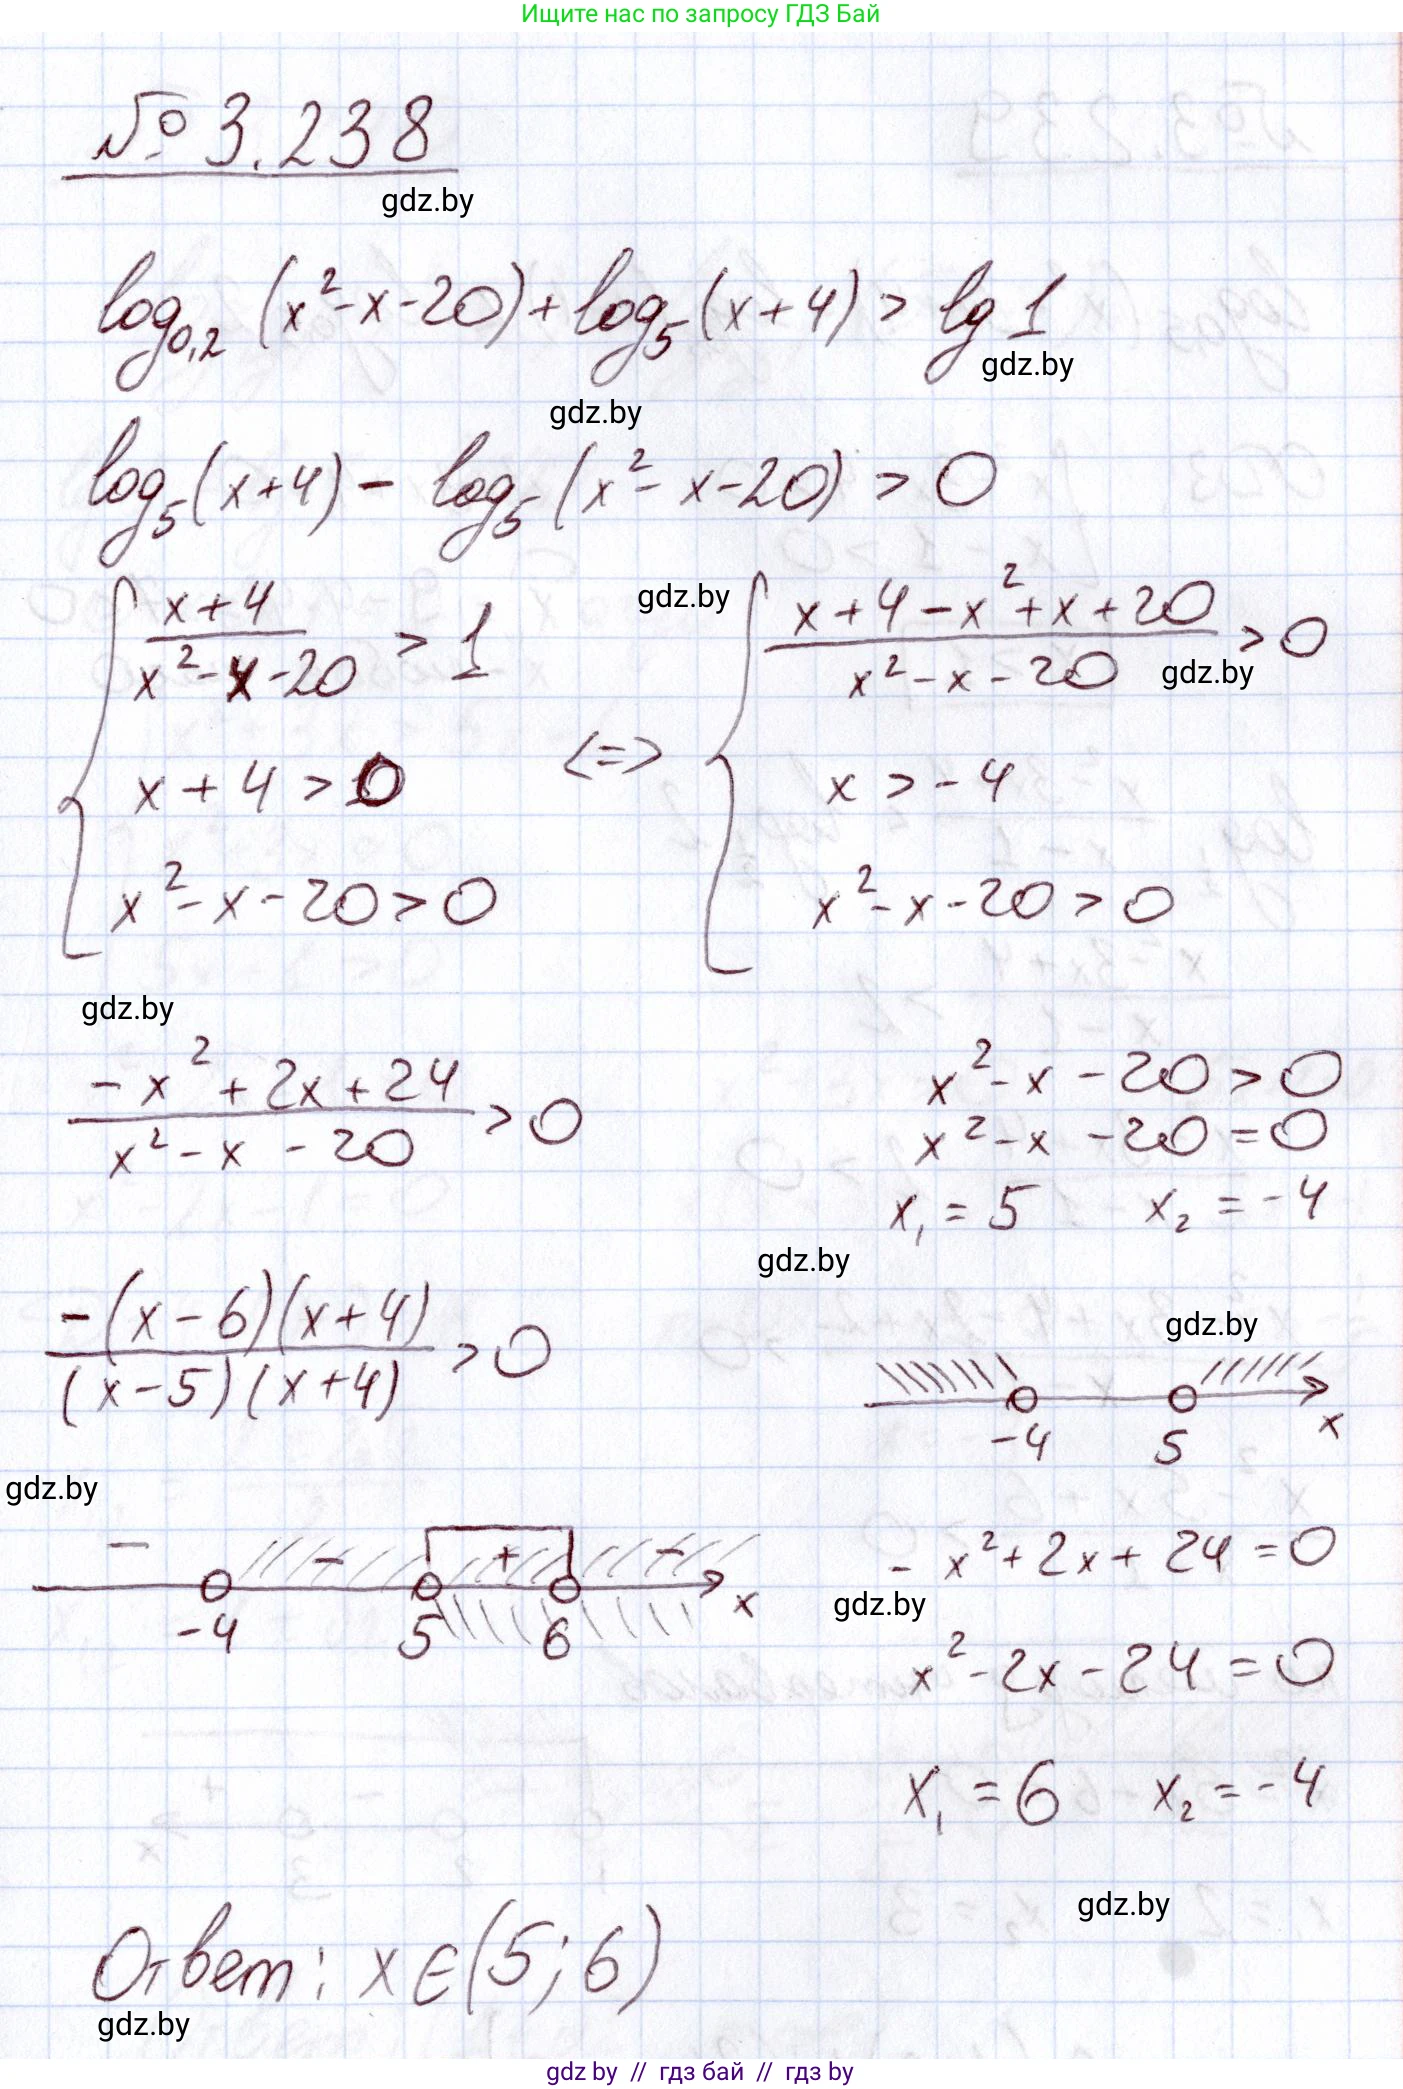 Ищите нас по запросу ГДЗ Бай
№ 3.238
gdz.by
log₀,₂ (x² - x - 20) + log₅ (x + 4) > lg 1
gdz.by
gdz.by
log₅ (x + 4) - log₅ (x² - x - 20) > 0
{ (x + 4)/(x² - x - 20) > 1 <=> { (x + 4 - x² + x + 20)/(x² - x - 20) > 0
gdz.by
gdz.by
x + 4 > 0 x > -4
x² - x - 20 > 0 x² - x - 20 > 0
gdz.by
(-x² + 2x + 24)/(x² - x - 20) > 0
x² - x - 20 > 0
x² - x - 20 = 0
x₁ = 5 x₂ = -4
gdz.by
(-(x - 6)(x + 4))/((x - 5)(x + 4)) > 0
gdz.by
-4 5 x
gdz.by
- - + -
-4 5 6 x
-x² + 2x + 24 = 0
gdz.by
x² - 2x - 24 = 0
x₁ = 6 x₂ = -4
gdz.by
Ответ: x ∈ (5; 6)
gdz.by
gdz by // гдз бай // гдз by